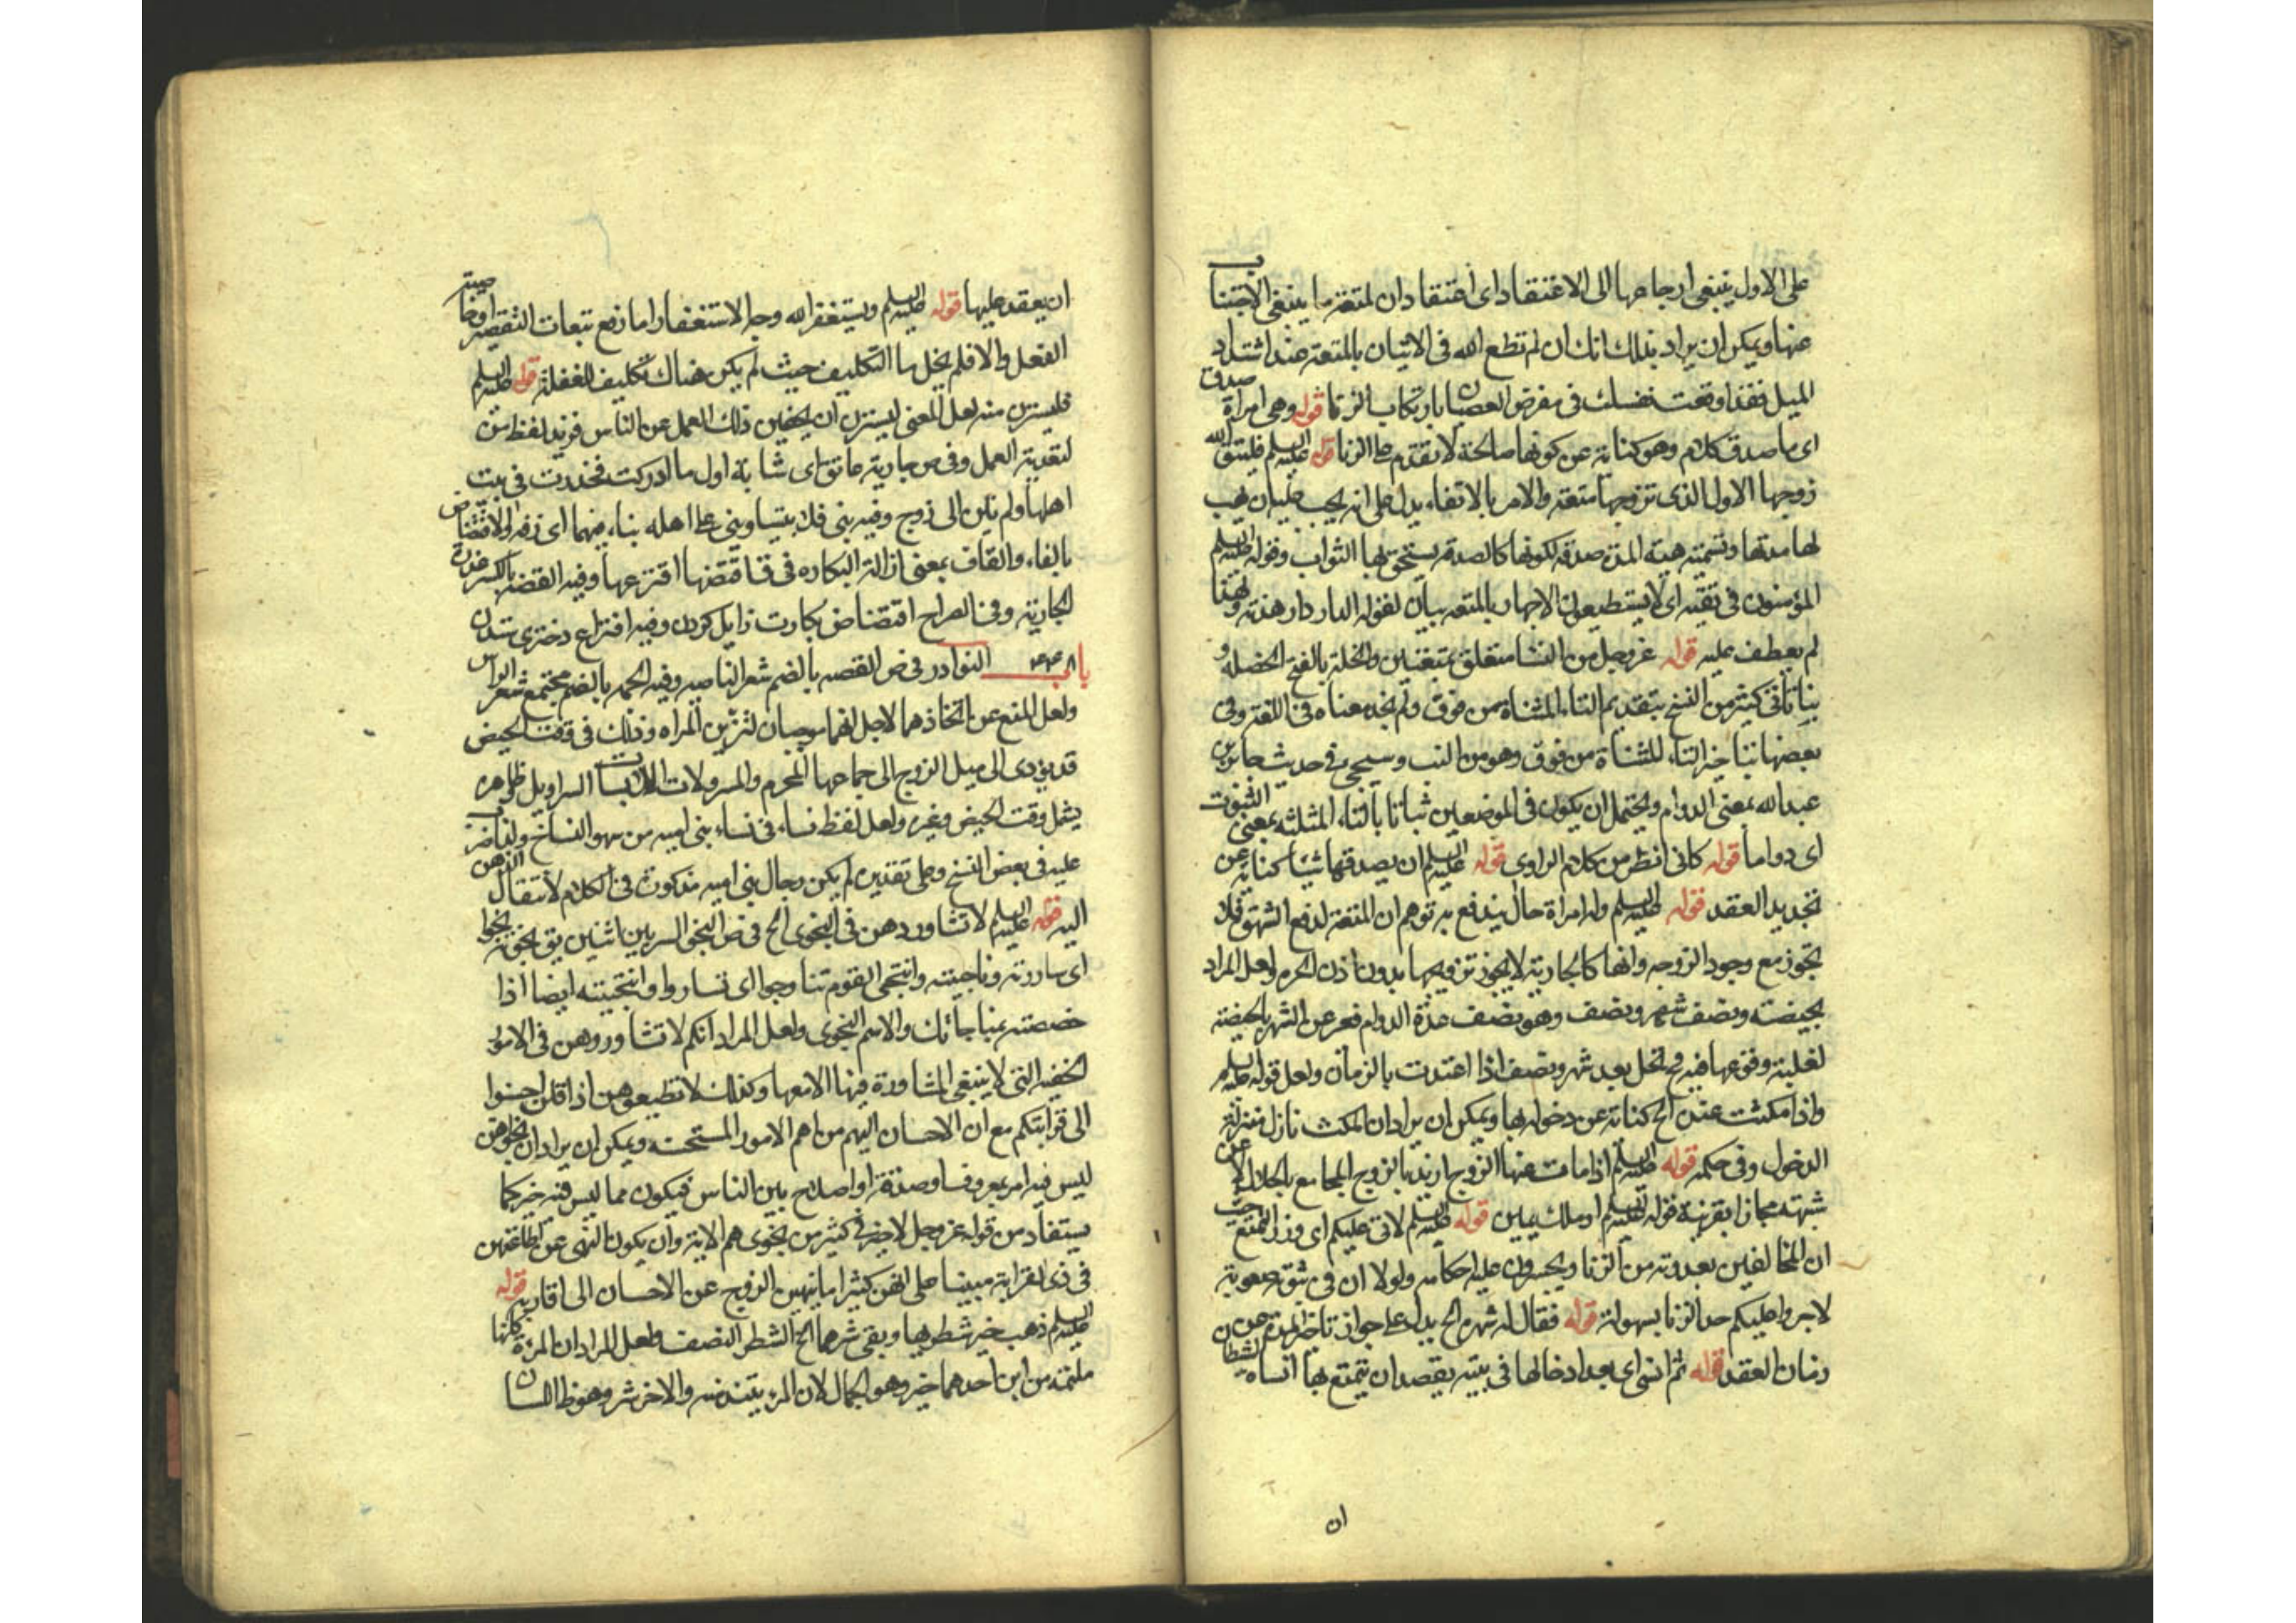 على الاول ينبغى ارجاعها الى الاعتقاد اى اعتقاد ان المتعة ما ينبغى الاجتناب
عنها ويمكن ان يراد بذلك انك ان لم تطع الله فى الاتيان بالمتعة عند اشتداد
الميل فقد اوقعت نفسك فى معرض العصيان بارتكاب الزنا قوله وهى امراة صدق
اى ما صدق كلام وهو كناية عن كونها صالحة لا تقدم على الزنا قوله عليه السلم فليتق الله
زوجها الاول الذى تزوجها متعة والامر بالاتقاء يدل على انه يجب عليه ان يهب
لها مدتها وتسمية هبة المدة صدقة لكونها كالصدقة يستحق بها الثواب وقوله عليه السلم
المؤمنون فى تقية اى لا يستطيعون الاجهار بالمتعه بيان لقوله الدار دار هدنة ولهذا
لم يعطف عليه قوله عز وجل من النسا متعلق بمتعتين والخلة بالفتح الخصله و
بتاتا فى كثير من النسخ بتقديم التاء المثناة من فوق ولم نجد معناه فى اللغة وفى
بعضها بتاخير التاء المثناة من فوق وهو من البت وسيجىء فى حديث
عبد الله بمعنى الدوام ويحتمل ان يكون فى الموضعين ثباتا بالثاء المثلثه بمعنى الثبوت
اى دواما قوله كانى انظر من كلام الراوى قوله عليه السلم ان يصدقها شيئا كناية عن
تجديد العقد قوله عليه السلم وله امراة حال يندفع به توهم ان المتعة لدفع الشهوة فلا
تجوز مع وجود الزوجه وانها كالجارية لا يجوز تزويجها بدون اذن الحرة ولعل المراد
بحيضة ونصف شهر ونصف وهو نصف عدة الدوام فعبر عن الشهر بالحيضة
لغلبة وقوعها فيه فتحل بعد شهر ونصف اذا اعتدت بالزمان ولعل قوله عليه السلم
واذا مكثت عنده الخ كناية عن دخوله بها ويمكن ان يراد ان المكث نازل منزلة
الدخول وفى حكمه قوله عليه السلم اذا مات عنها الزوج اريد بالزوج المجامع بالحلال او عن
شبهته مجازا بقرينة قوله عليه السلم او ملك يمين قوله عليه السلم لاتى عليكم اى وزر التمتع حيث
ان المخالفين يعدونه من الزنا ويجسرون عليه احكامه ولولا ان فى ثبوته صعوبة
لاجروا عليكم حد الزنا بسهولة قوله فقال له شهره الخ يدل على جواز تاخير المدة عن
زمان العقد قوله ثم انسى اى بعد ادخالها فى بيته بقصد ان يتمتع بها انساه الشيطان
ان
ان يعقد عليها قوله عليه السلم ويستغفر الله وجه الاستغفار اما رفع تبعات التقصير او خاصية
الفعل والا فلم يخل بها التكليف حيث لم يكن هناك تكليف للغفلة قوله عليه السلم
فليستزن منه لعل المعنى ليستزن ان يخفين ذلك العمل عن الناس فزيد لفظ من
لتعدية العمل وفى ص جارية عاتق اى شابة اول ما ادركت فخدرت فى بيت
اهلها ولم تبن الى زوج وفيه بنى فلان بيتا وبنى على اهله بناء فيهما اى زفها والاقتضاض
بالفاء والقاف بمعنى ازالة البكاره فى ق اقتضها افترعها وفيه القضة بالكسر عذرة
الجارية وفى الصراح اقتضاض بكارت زايل كردن وفيه افتراع دخترى ستدن
باب النوادر فى ص القصه بالضم شعر الناصيه وفيه الجمه بالضم مجتمع شعر الراس
ولعل المنع عن اتخاذهما لاجل انهما موجبان لتزيين المراه وذلك فى وقت الحيض
قد يؤدى الى ميل الزوج الى جماعها المحرم والمسرولات اللابسات السراويل ظاهره
يشمل وقت الحيض وغيره ولعل لفظ نساء فى نساء بنى اميه من سهو النساخ ولذا ضرب
عليه فى بعض النسخ وعلى تقديره لم يكن رجال بنى اميه مذكورة فى الكلام لانتقال الذهن
اليه قوله عليه السلم لا تشاوردهن فى النجوى الخ فى ص النجو السر بين اثنين يق نجوته نجوا
اى ساررته وناجيته وانتجى القوم تناجوا اى تساروا وانتجيته ايضا اذا
خصصته بمناجاتك والاسم النجوى ولعل المراد انكم لا تشاوروهن فى الامور
الخفيه التى لا ينبغى المشاورة فيها الا معها وكذلك لا تطيعوهن اذا قلن احسنوا
الى قرابتكم مع ان الاحسان اليهم من اهم الامور المستحسنه ويمكن ان يراد ان نجوهن
ليس فيه امر بمعروف او صدقة او اصلاح بين الناس فيكون مما ليس فيه خير كما
يستفاد من قوله عز وجل لا خير فى كثير من نجوى هم الاية وان يكون النهى عن اطاعتهن
فى ذى القرابة مبينا على انهن كثيرا ما ينهين الزوج عن الاحسان الى اقاربه قوله
عليه السلم ذهب خير شطريها وبقى شرهما الخ الشطر النصف ولعل المراد ان المرأة كانها
ملتئمة من اين احدهما خير وهو الجمال لان المرء يتلذذ منه والاخر شر وهو ظ اللسان